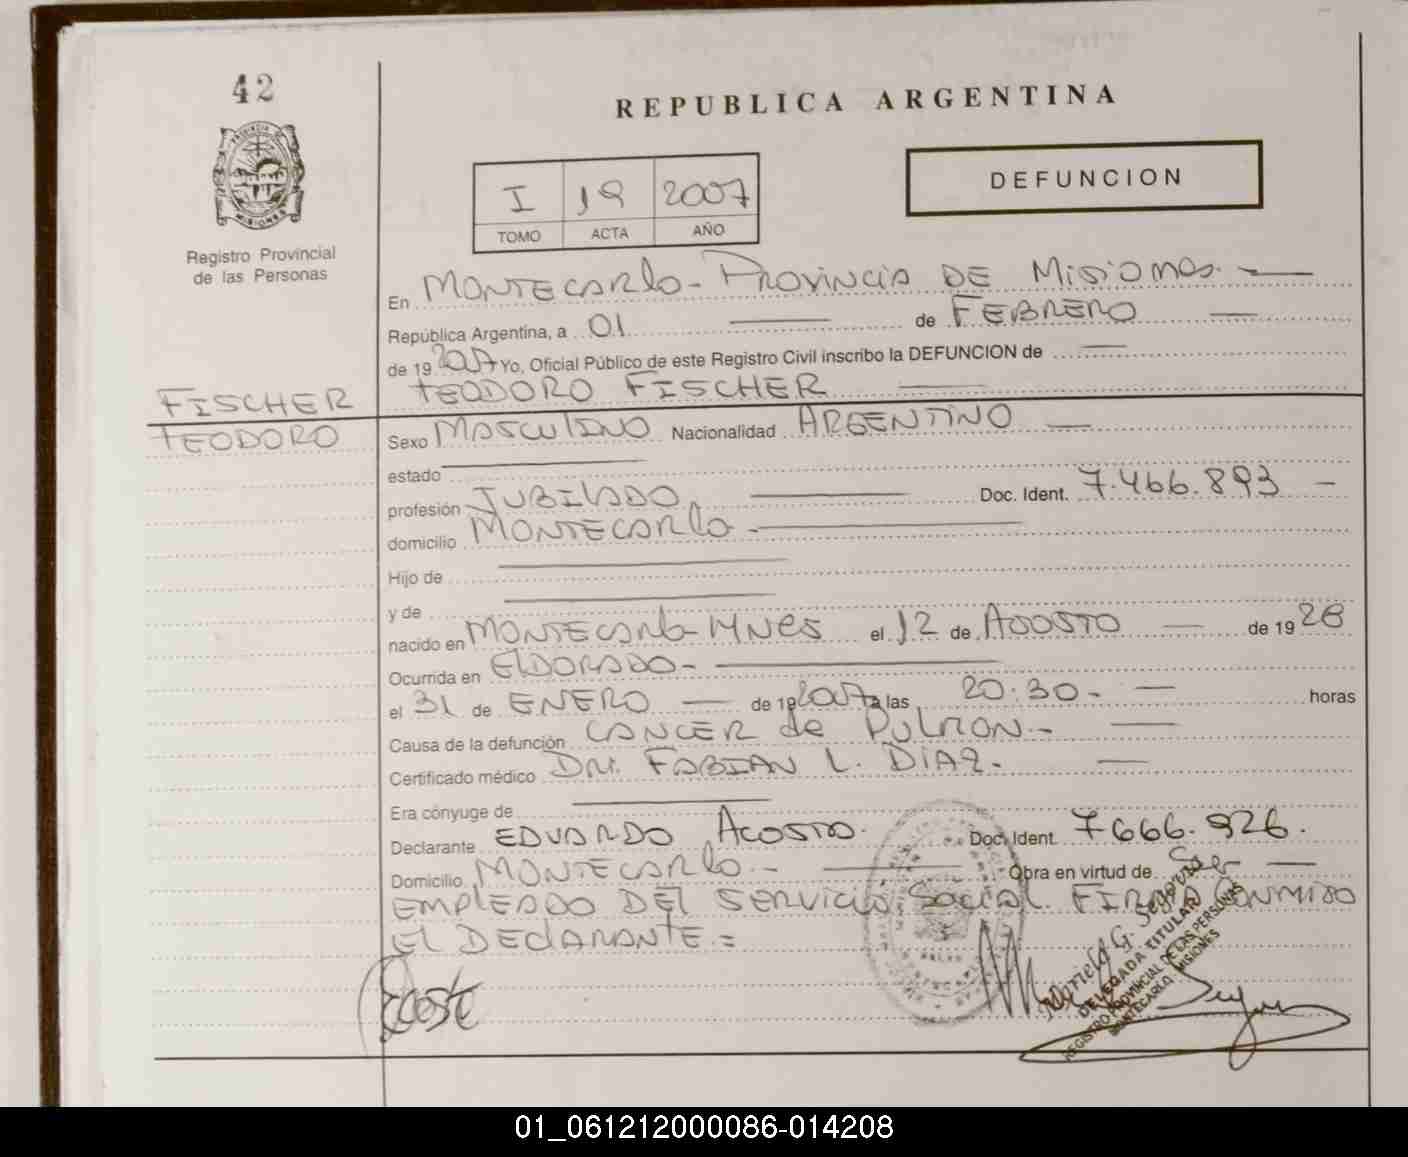 42
REPUBLICA ARGENTINA
I 19 2007
TOMO ACTA AÑO
DEFUNCION
PROVINCIA DE
MISIONES
Registro Provincial
de las Personas
En MONTECARLO - PROVINCIA DE MISIONES.
República Argentina, a 01 de FEBRERO
de 19 2007 Yo, Oficial Público de este Registro Civil inscribo la DEFUNCION de
TEODORO FISCHER
FISCHER
TEODORO
Sexo MASCULINO Nacionalidad ARGENTINO
estado
profesión JUBILADO Doc. Ident. 7.466.893
domicilio MONTECARLO -
Hijo de
y de
nacido en MONTECARLO - MNES el 12 de AGOSTO de 19 28
Ocurrida en ELDORADO -
el 31 de ENERO de 19 2007 a las 20:30 - horas
Causa de la defunción CANCER de PULMON. -
Certificado médico DR. FABIAN L. DIAZ. -
Era cónyuge de
Declarante EDUARDO ACOSTA. Doc. Ident. 7666.926.
Domicilio MONTECARLO - Obra en virtud de Ser
EMPLEADO DEL SERVICIO SOCIAL. FIRMA CONMIGO
EL DECLARANTE. =
Acosta
DELEGADA TITULAR
REGISTRO PROVINCIAL DE LAS PERSONAS
MONTECARLO, MISIONES
01_061212000086-014208